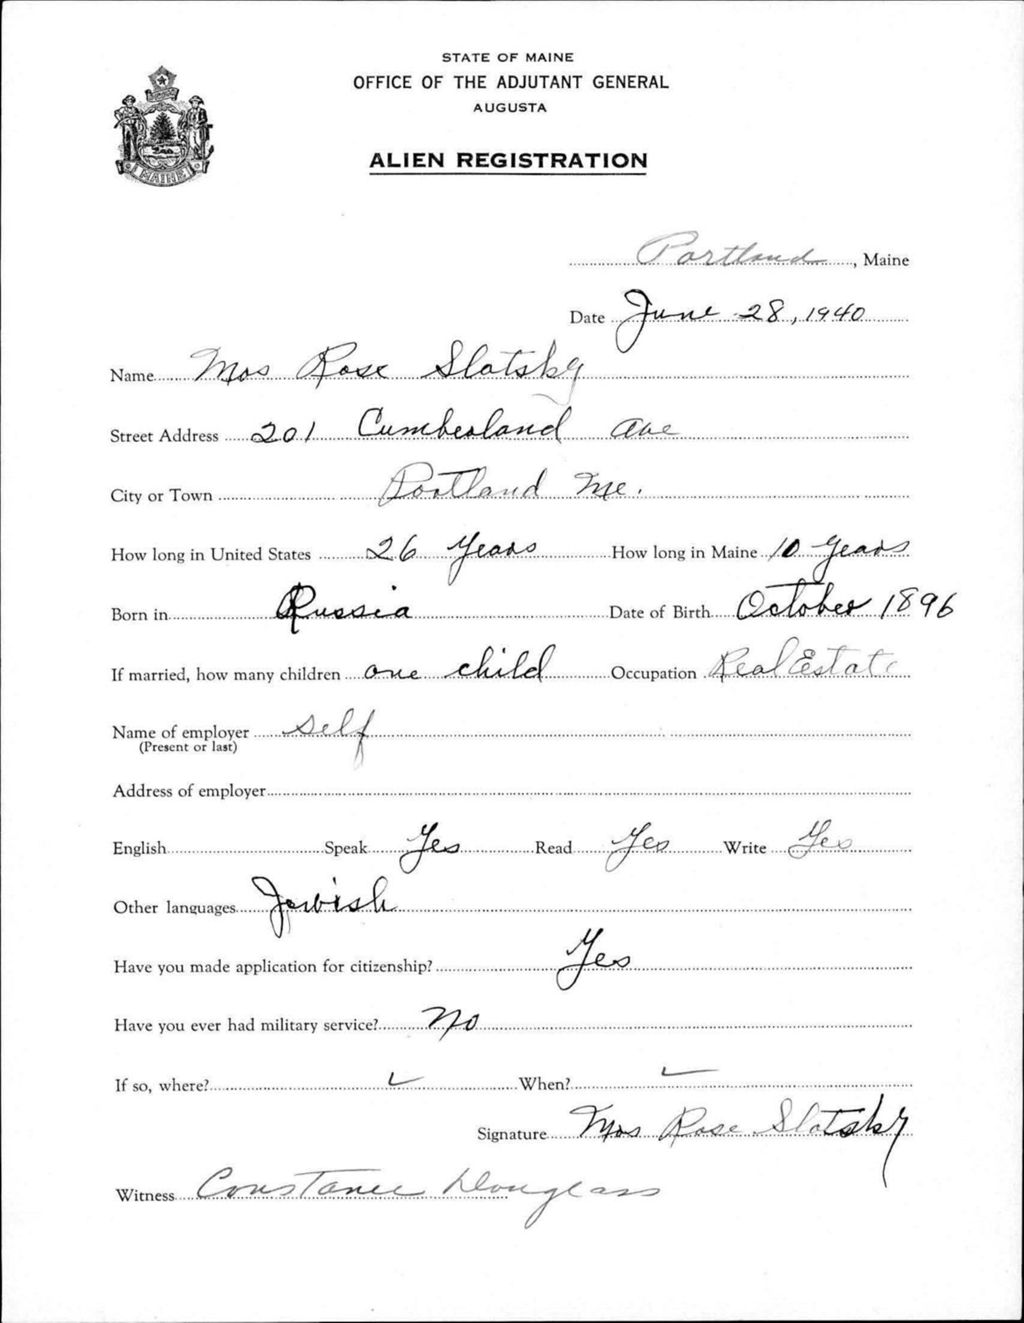 STATE OF MAINE
OFFICE OF THE ADJUTANT GENERAL
AUGUSTA
ALIEN REGISTRATION
MAINE
Portland, Maine
Date June 28, 1940
Name Mrs Rose Slotsky
Street Address 201 Cumberland Ave
City or Town Portland Me.
How long in United States 26 Years How long in Maine 10 Years
Born in Russia Date of Birth October 1896
If married, how many children one child Occupation Real Estate
Name of employer self
(Present or last)
Address of employer
English Speak Yes Read Yes Write Yes
Other languages Jewish
Have you made application for citizenship? Yes
Have you ever had military service? No
If so, where? When?
Signature Mrs Rose Slotsky
Witness Constance Douglass